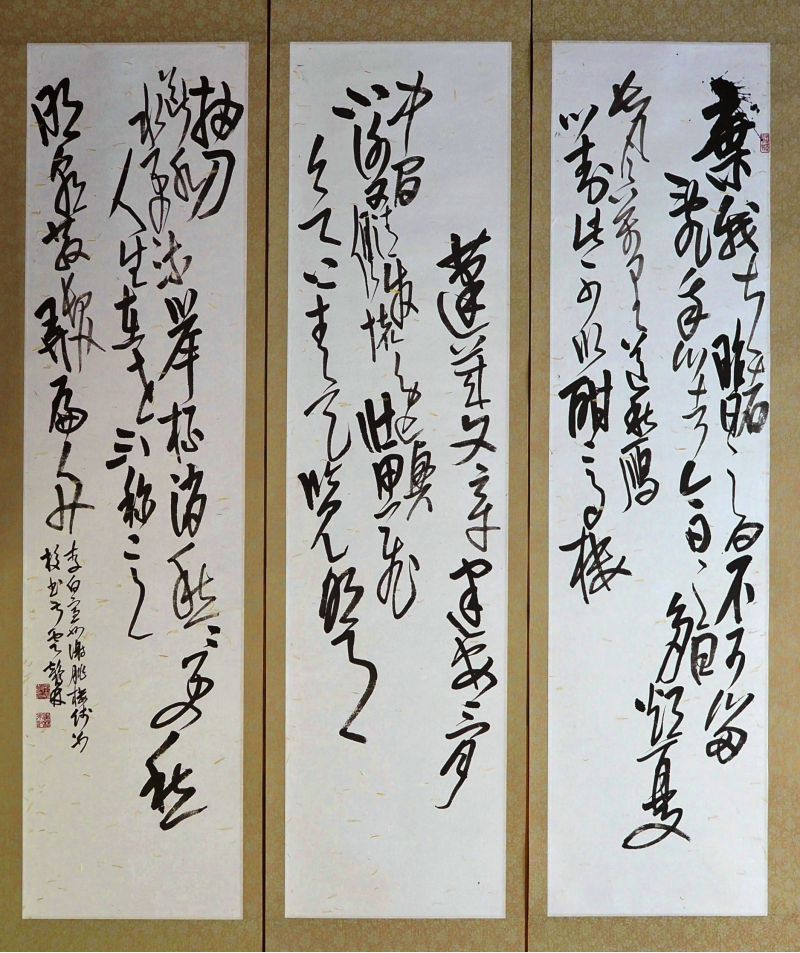 棄我去者昨日之日不可留
亂我心者今日之日多煩憂
長風萬里送秋雁
對此可以酣高樓
蓬萊文章建安骨
中間
小謝又清發俱懷逸興壯思飛
欲上青天覽明月
抽刀
斷水水更流舉杯消愁愁更愁
人生在世不稱意
明朝散髮弄扁舟
李白宣州謝朓樓餞別
校書叔雲